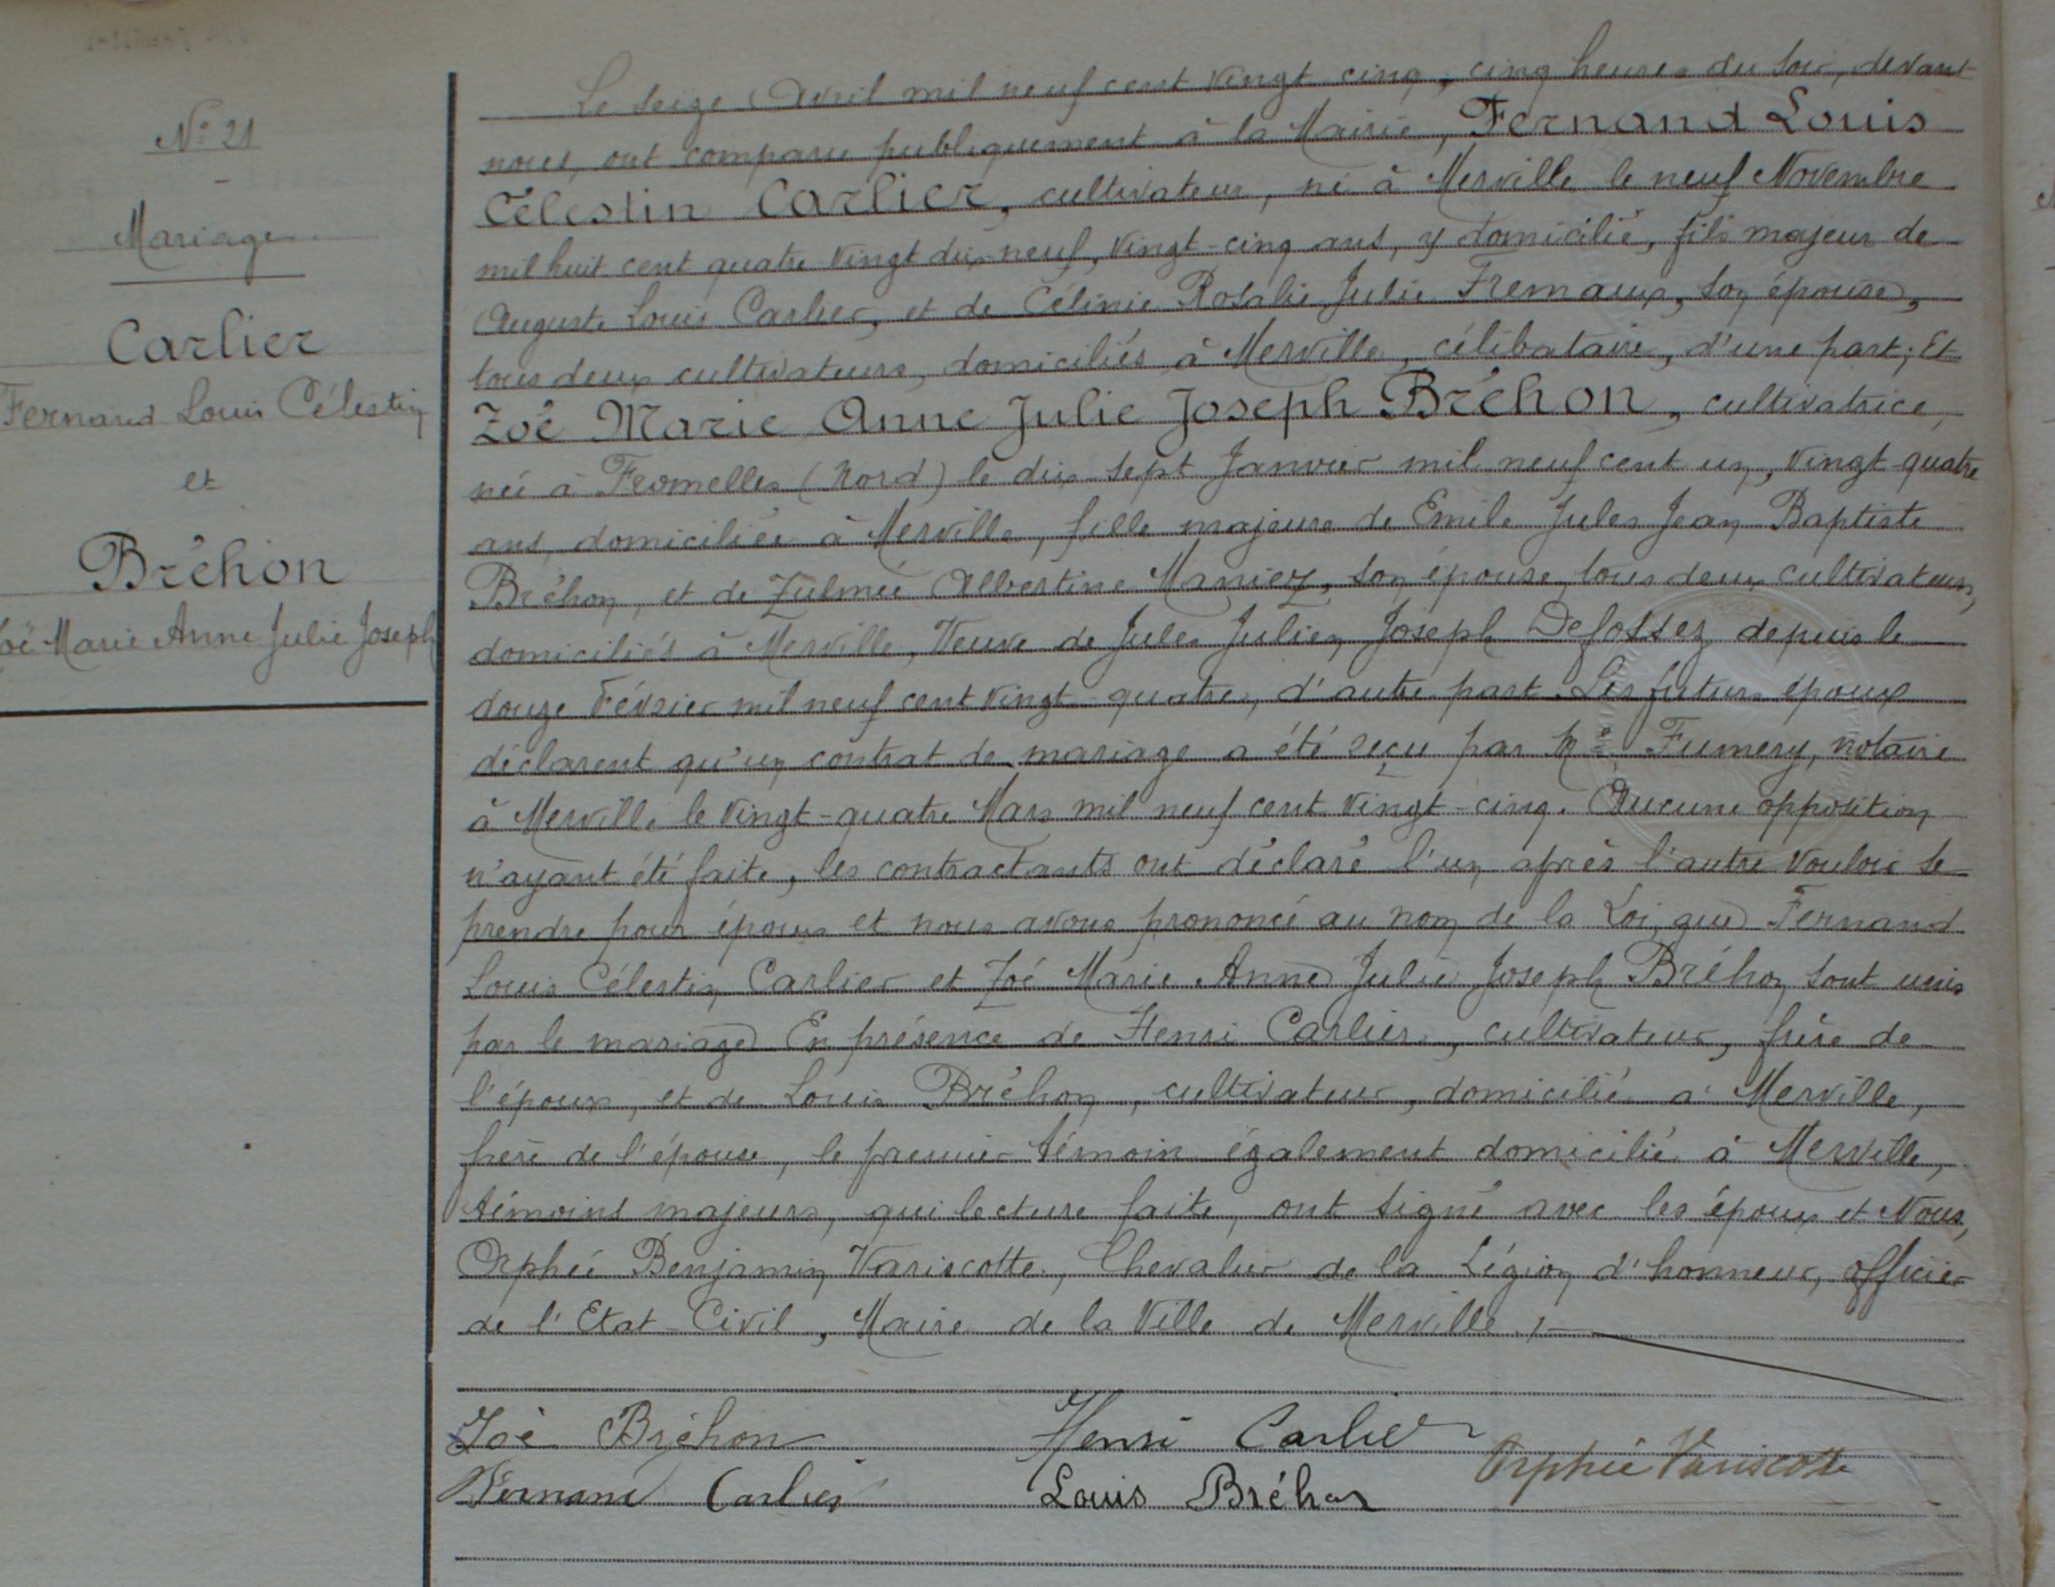 N° 21
Mariage
Carlier
Fernand Louis Célestin
et
Bréhon
Zoé Marie Anne Julie Joseph
Le seize Avril mil neuf cent vingt cinq, cinq heures du soir, devant
nous, ont comparu publiquement à la Mairie, Fernand Louis
Célestin Carlier, cultivateur, né à Merville le neuf Novembre
mil huit cent quatre vingt dix-neuf, vingt-cinq ans, y domicilié, fils majeur de
Auguste Louis Carlier, et de Célinie Rosalie Julie Fremaux, son épouse,
tous deux cultivateurs, domiciliés à Merville, célibataire, d'une part; Et
Zoé Marie Anne Julie Joseph Bréhon, cultivatrice,
née à Fromelles (Nord) le dix sept Janvier mil neuf cent un, vingt quatre
ans, domiciliée à Merville, fille majeure de Emile Jules Jean Baptiste
Bréhon, et de Zulmée Albertine Maniez, son épouse, tous deux cultivateurs,
domiciliés à Merville, Veuve de Jules Julien Joseph Defossez depuis le
douze Février mil neuf cent vingt-quatre, d'autre part. Les futurs époux
déclarent qu'un contrat de mariage a été reçu par Me Fumery, notaire
à Merville le vingt-quatre Mars mil neuf cent vingt-cinq. Aucune opposition
n'ayant été faite, les contractants ont déclaré l'un après l'autre vouloir se
prendre pour époux et nous avons prononcé au nom de la Loi, que Fernand
Louis Célestin Carlier et Zoé Marie Anne Julie Joseph Bréhon sont unis
par le mariage En présence de Henri Carlier, cultivateur, frère de
l'époux, et de Louis Bréhon, cultivateur, domicilié à Merville,
frère de l'épouse, le premier témoin également domicilié à Merville,
témoins majeurs, qui lecture faite, ont signé avec les époux et Nous,
Orphée Benjamin Variscotte, Chevalier de la Légion d'honneur, officier
de l'Etat-Civil, Maire de la Ville de Merville.
Zoé Bréhon Henri Carlier Orphée Variscotte
Fernand Carlier Louis Bréhon